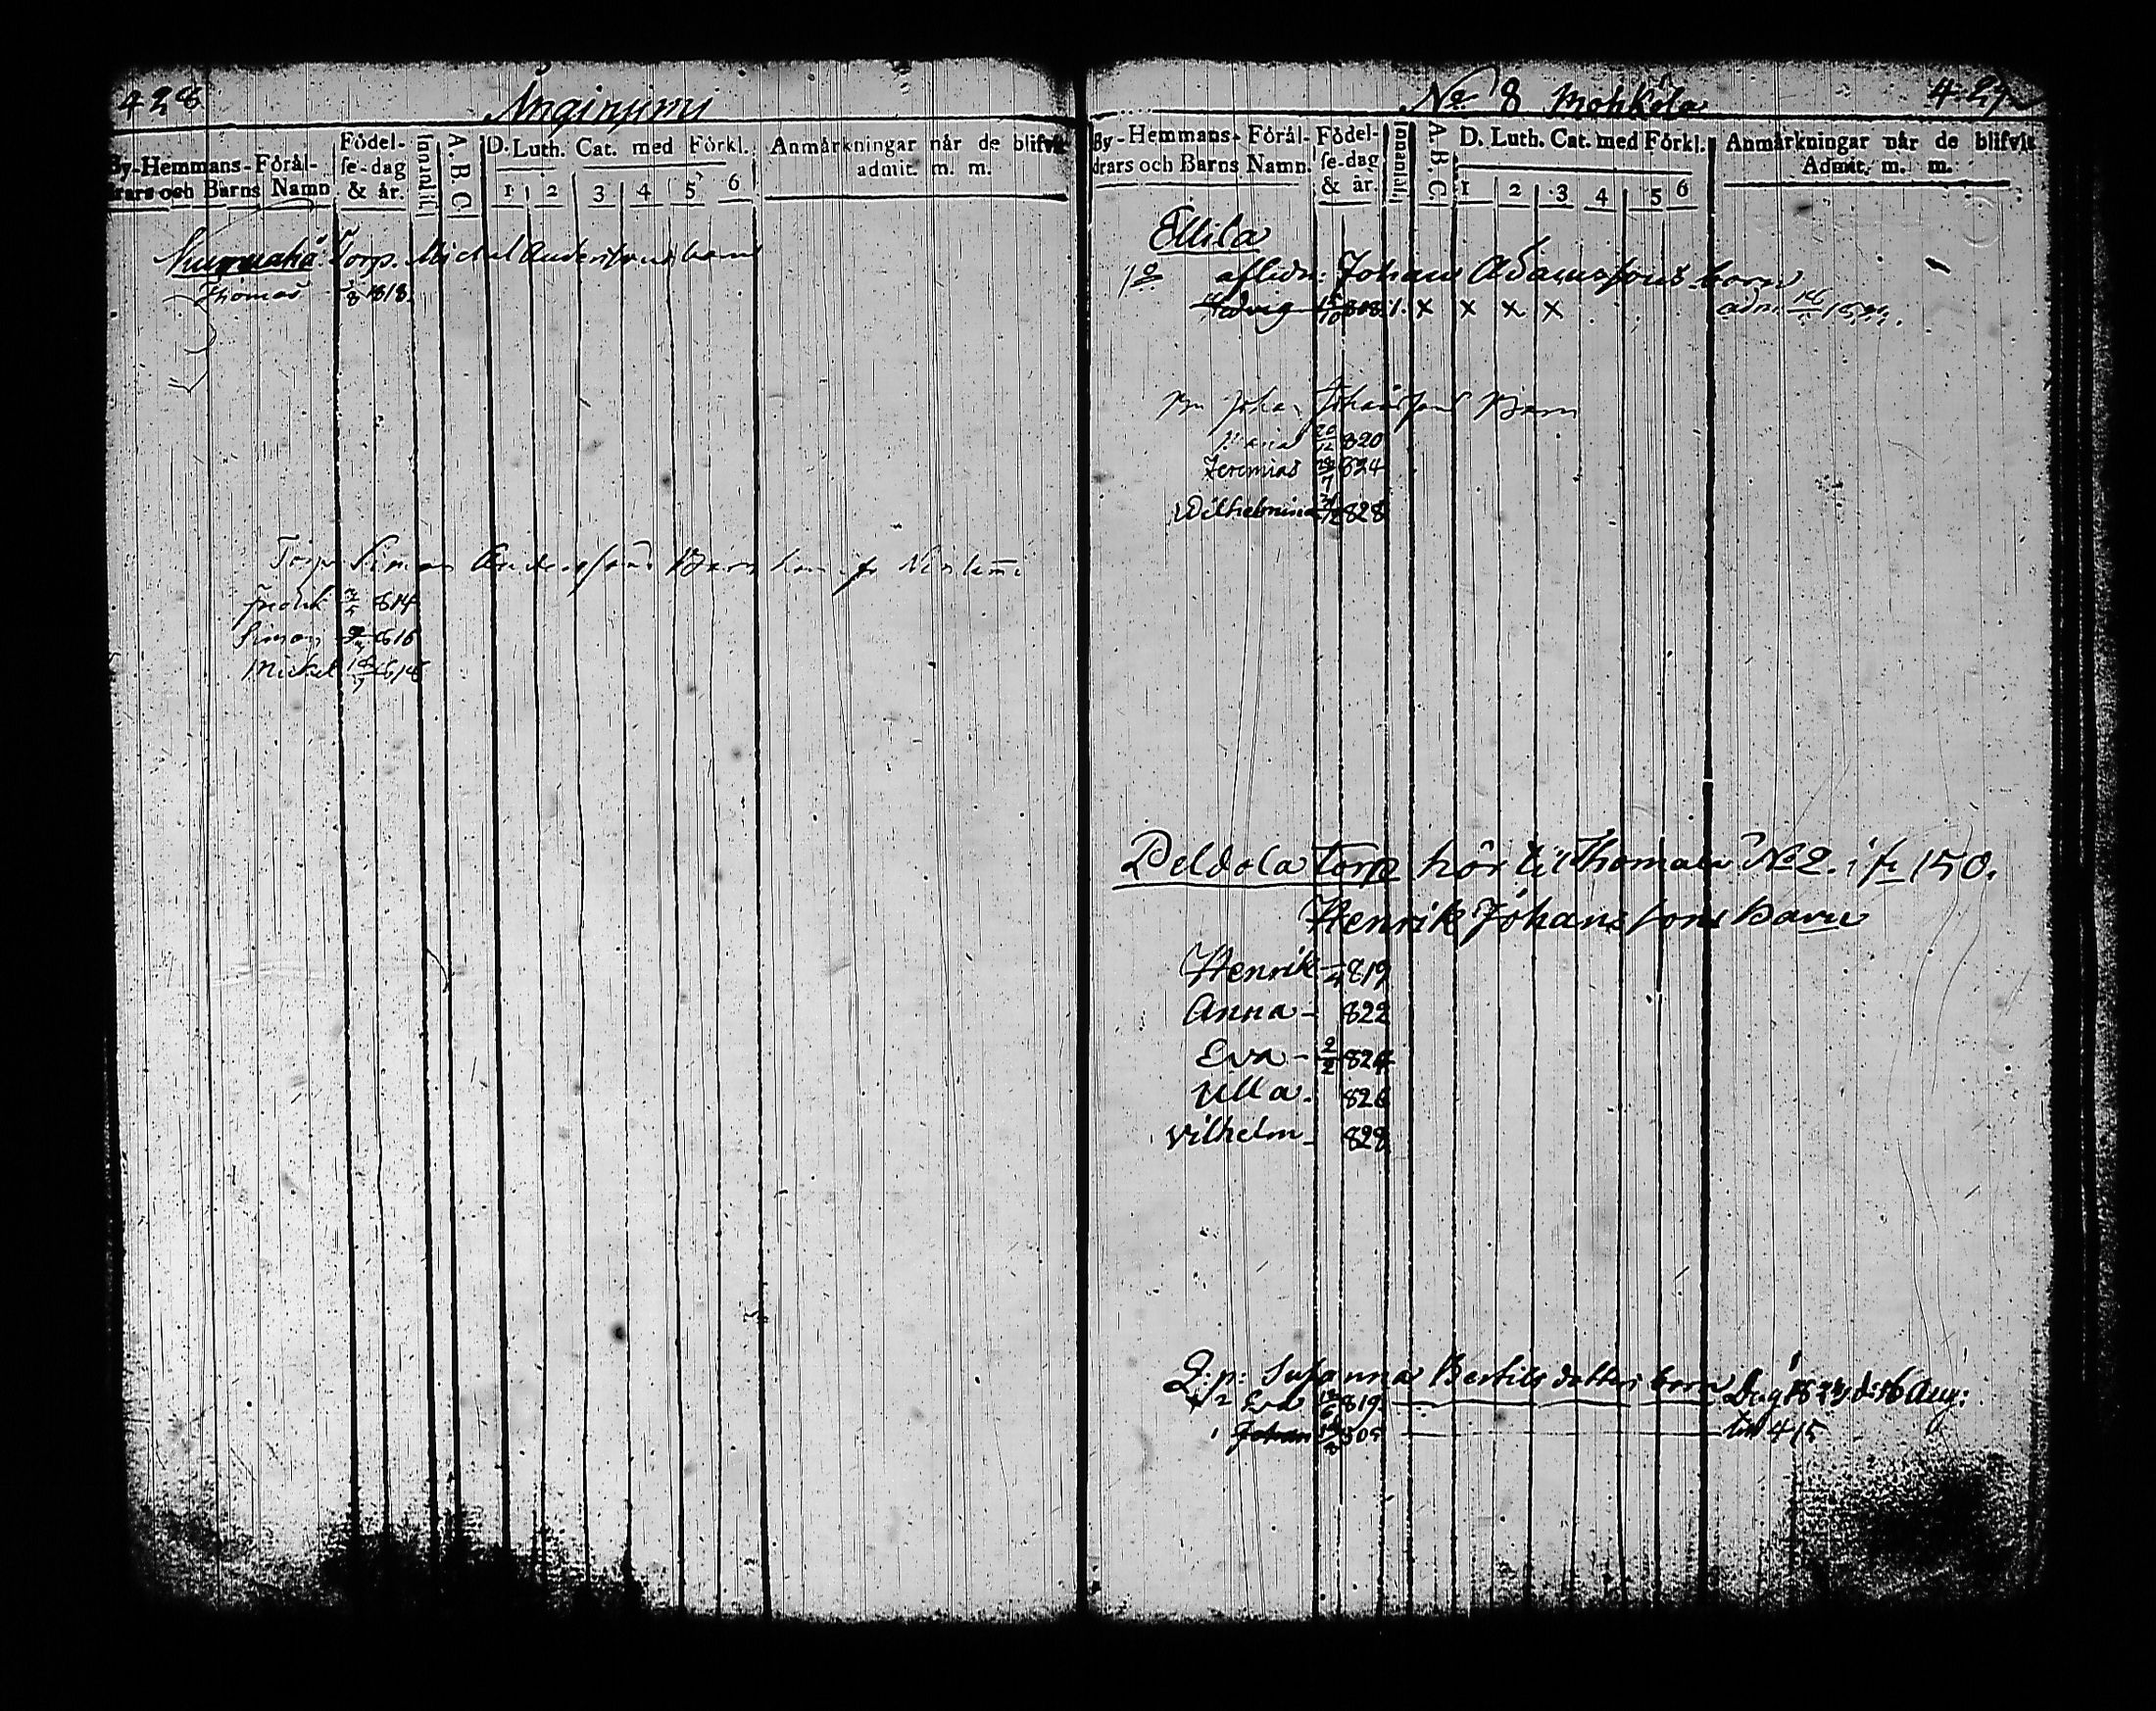 428
Änginjemi
By-Hemmans-Förål-drars och Barns Namn Födel-se-dag & år. Innantil. A.B.C. D. Luth. Cat. med Förkl. 1 2 3 4 5 6 Anmärkningar när de blifvit admit. m. m.
Torp. Michel Anderssons barn
Thomas 1/8 1818.
Torp Simon Anderssons Barn
fredrik 814
Simon 816
Michel 818
No 8 Mohkola 427
By-Hemmans-Förål-drars och Barns Namn. Födel-se-dag & år. Innantil. A.B.C. D. Luth. Cat. med Förkl. 1 2 3 4 5 6 Anmärkningar när de blifvit Admit. m. m.
Ellila
1o aflidn: Johan Adamssons barn
Hedvig 808. 1. x x x x adm.
Johan Johanssons Barn
Maria 20/12 820
Jeremias 824
Wilhelmina 828
Peldola torp hör til Thomala No 2. i fr 150.
Henrik Johanssons Barn
Henrik 819
Anna - 822
Eva - 2/2 824
Ulla. 826
Vilhelm - 828
Q:p: Susanna Bertilsdotters barn
Eva 819. d: 16 Aug:
Johan 805 till 415